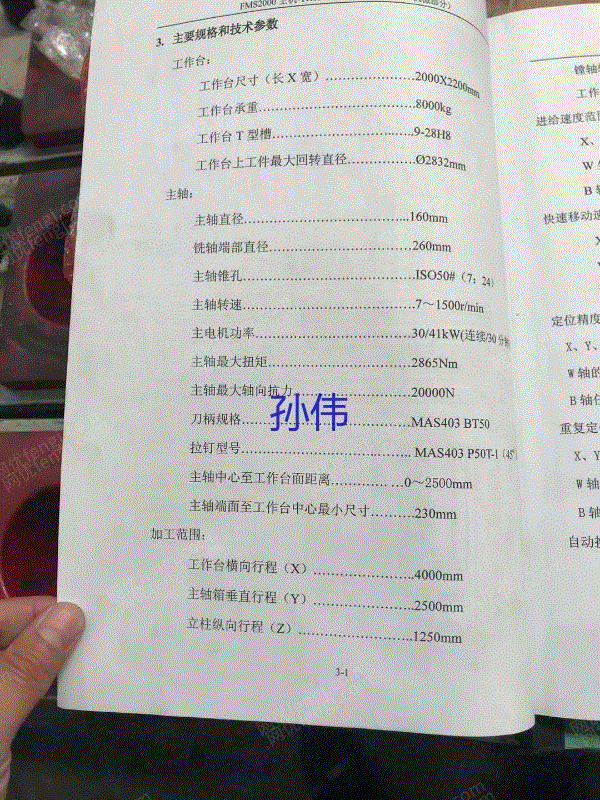 FMS2000
3. 主要规格和技术参数
工作台：
工作台尺寸（长 X 宽）…………………2000X2200mm
工作台承重…………………………………8000kg
工作台 T 型槽………………………………9-28H8
工作台上工件最大回转直径……………Ø2832mm
主轴：
主轴直径…………………………………160mm
铣轴端部直径……………………………260mm
主轴锥孔…………………………………ISO50#（7：24）
主轴转速…………………………………7～1500r/min
主电机功率………………………………30/41kW(连续/30 分钟)
主轴最大扭矩……………………………2865Nm
主轴最大轴向抗力………………………20000N
孙伟
刀柄规格…………………………………MAS403 BT50
拉钉型号…………………………………MAS403 P50T-1（45°）
主轴中心至工作台面距离………… …0～2500mm
主轴端面至工作台中心最小尺寸………230mm
加工范围：
工作台横向行程（X）…………………4000mm
主轴箱垂直行程（Y）…………………2500mm
立柱纵向行程（Z）……………………1250mm
3-1
镗轴
工作
进给速度范围
X、
W
B 轴
快速移动速
X
W
定位精度
X、Y、
W 轴的
B 轴任
重复定
X、Y
W 轴
B 轴
自动换